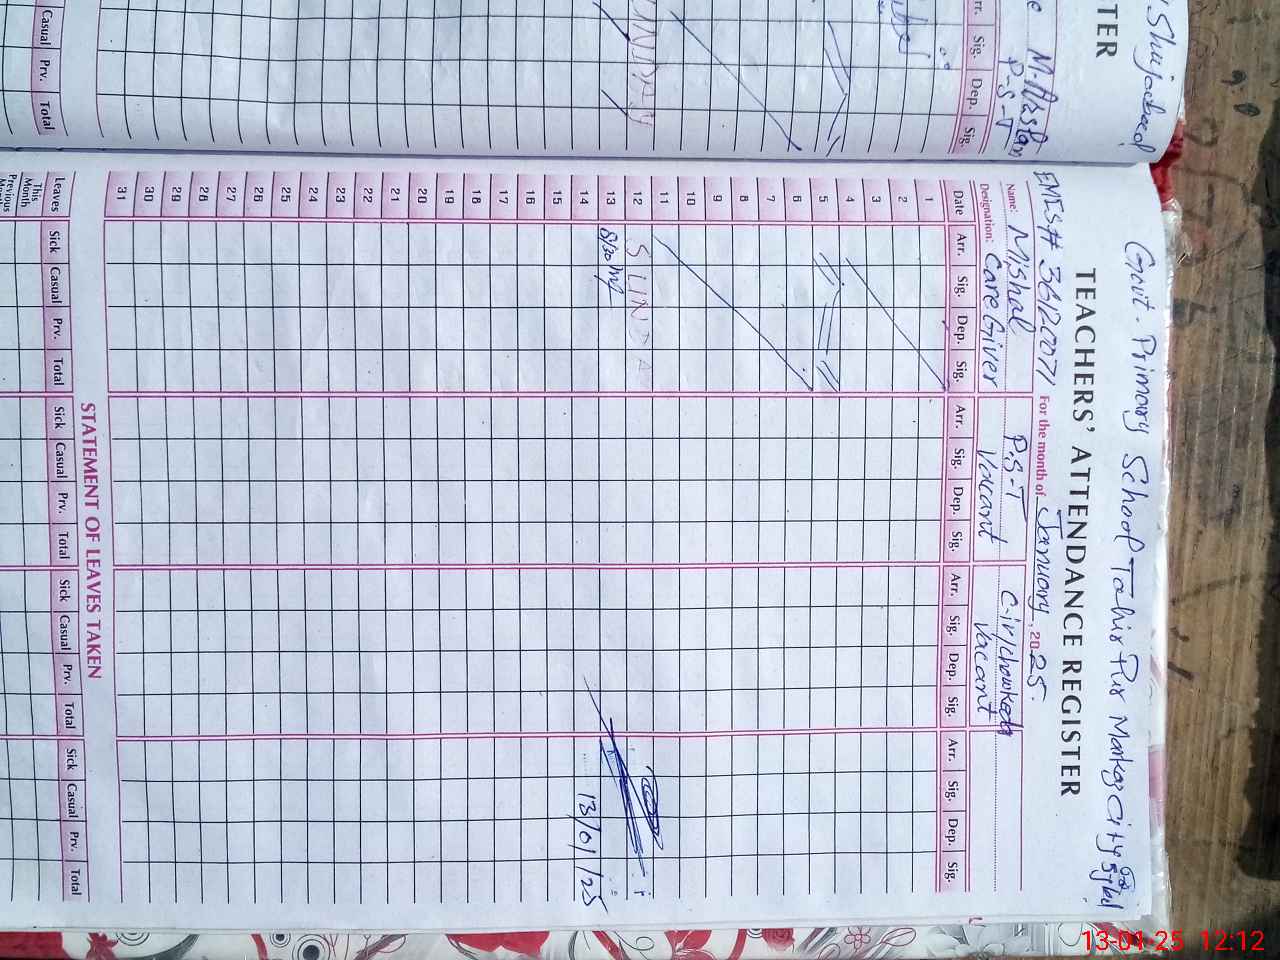 Shujaabad
TER
M. Aslam
P-S-T
Sig. Dep. Sig.
SUNDAY
Casual Prv. Total
Govt. Primary School Tahir Pur Markaz City
TEACHERS' ATTENDANCE REGISTER
EMIS# 36120071 For the month of January, 2025.
Name: Mishal P.S-T
Designation: Care Giver Vacant Vacant
Date Arr. Sig. Dep. Sig. Arr. Sig. Dep. Sig. Arr. Sig. Dep. Sig. Arr. Sig. Dep. Sig.
1
2
3
4
5
6
7
8
9
10
11
12 SUNDA
13 8/30
14 13/01/25
15
16
17
18
19
20
21
22
23
24
25
26
27
28
29
30
31
STATEMENT OF LEAVES TAKEN
Leaves Sick Casual Prv. Total Sick Casual Prv. Total Sick Casual Prv. Total Sick Casual Prv. Total
This Month
Previous
13-01-25 12:12